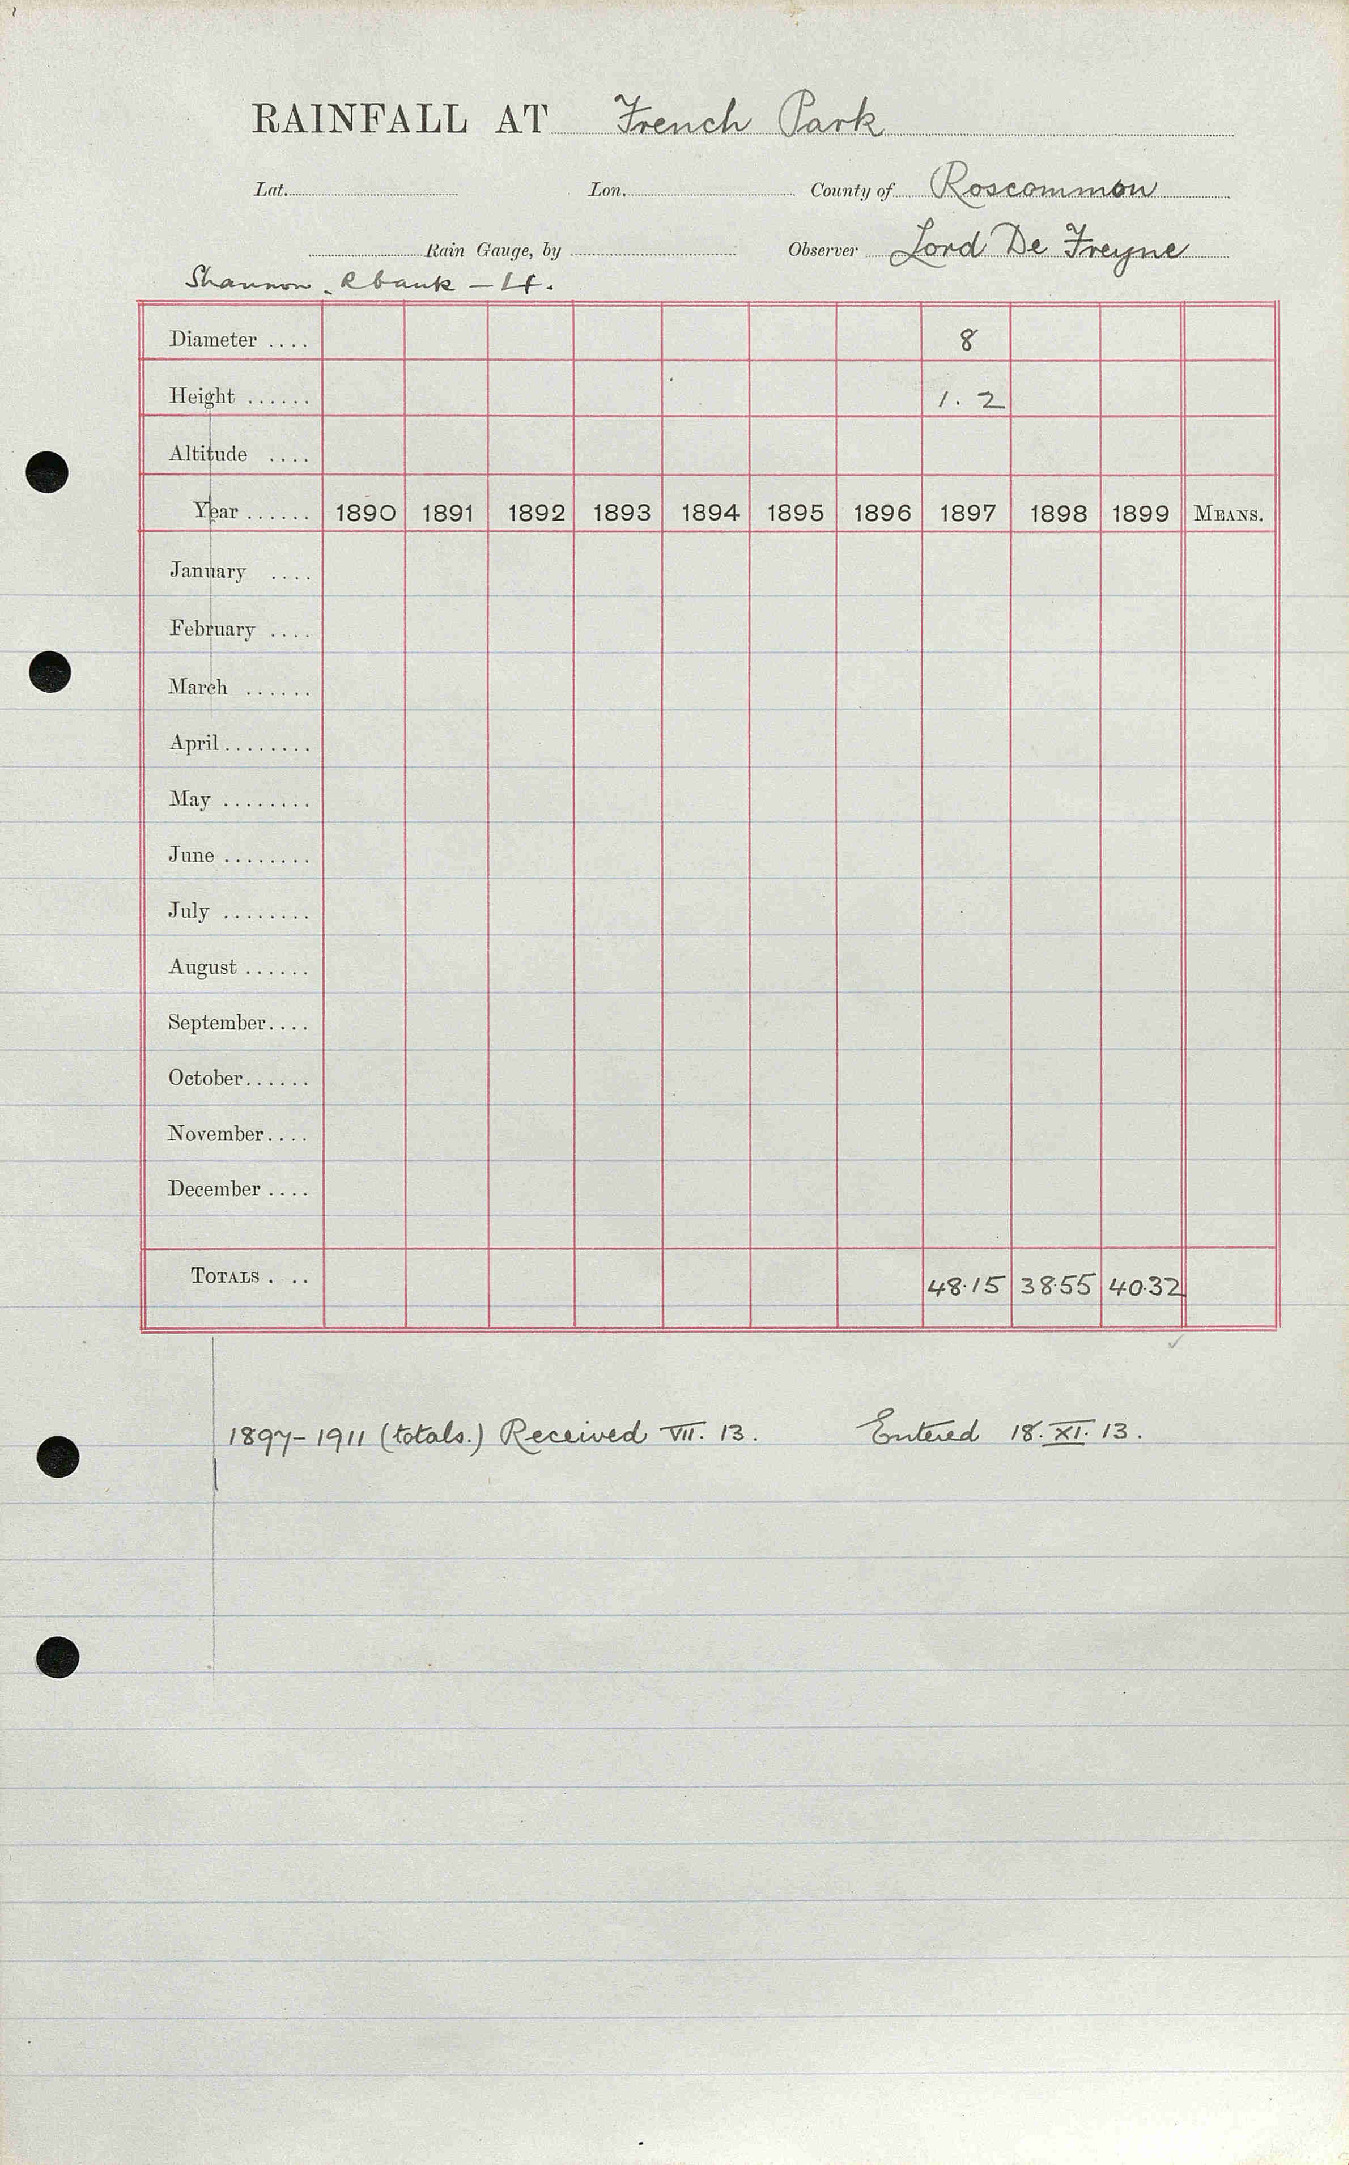 RAINFALL AT French Park
Lat. Lon. County of Roscommon
Rain Gauge, by Observer Lord De Freyne
Shannon. R bank - 4.
Diameter .... 8
Height ...... 1. 2
Altitude ....
Year ...... 1890 1891 1892 1893 1894 1895 1896 1897 1898 1899 MEANS.
January ....
February ....
March ......
April ........
May ........
June ........
July ........
August ......
September....
October......
November....
December ....
TOTALS . .. 48.15 38.55 40.32
1897-1911 (totals.) Received VII. 13. Entered 18. XI. 13.